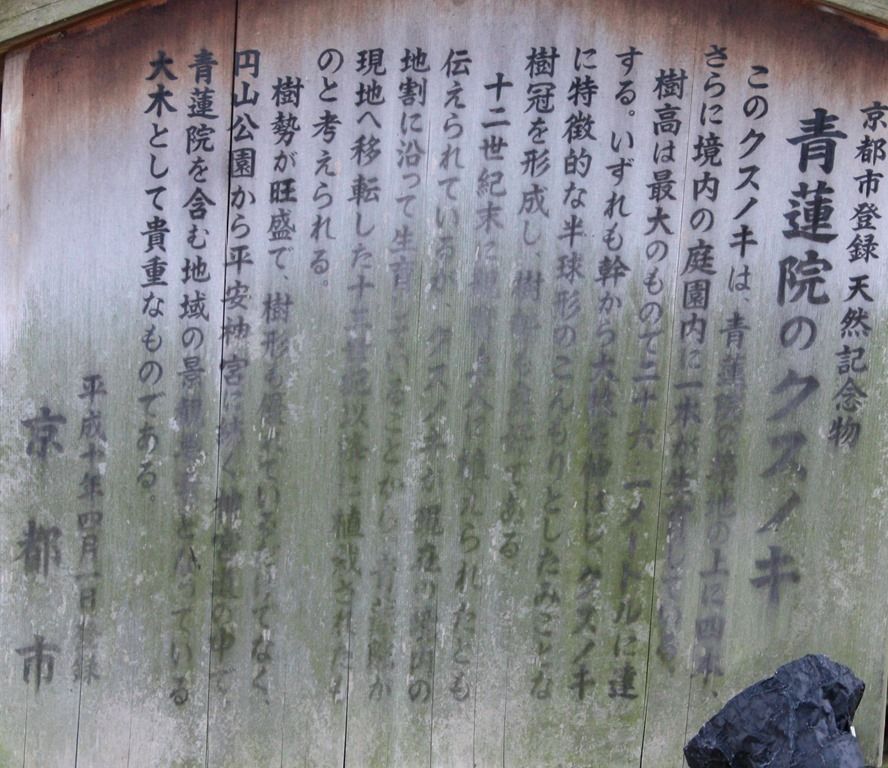 京都市登録 天然記念物
青蓮院のクスノキ
このクスノキは、青蓮院の築地の上に四本、
さらに境内の庭園内に一本が生育している。
樹高は最大のもので二十六・一メートルに達
する。いずれも幹から大枝を伸ばし、クスノキ
に特徴的な半球形のこんもりとしたみごとな
樹冠を形成し、樹勢も良好である
十二世紀末に親鸞聖人に植えられたとも
伝えられているが、クスノキが現在の境内の
地割に沿って生育していることから、青蓮院が
現地へ移転した十三世紀以降に植栽されたも
のと考えられる。
樹勢が旺盛で、樹形も優れているだけでなく、
円山公園から平安神宮に続く神宮道の中で、
青蓮院を含む地域の景観 となっている
大木として貴重なものである。
平成十年四月一日登録
京都市